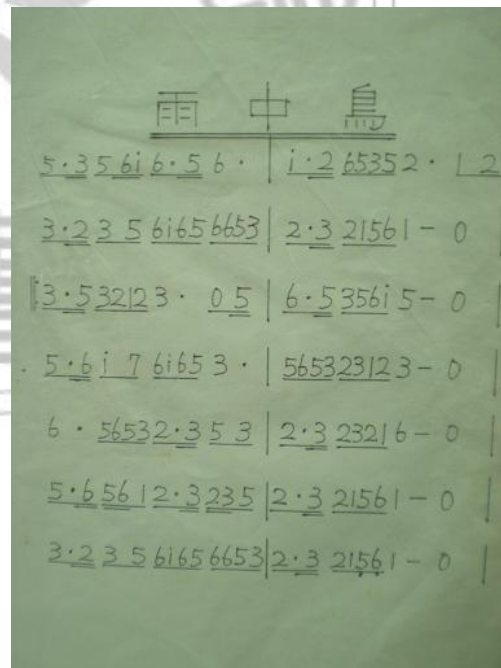 雨中鳥
5·3 5 6i 6·5 6· | i·2 6535 2· 1 2
3·2 3 5 6i65 6653 | 2·3 2156 1 - 0 |
‖3·5 3212 3· 0 5 | 6·5 356i 5 - 0 |
5·6 i 7 6i65 3· | 5653 2312 3 - 0 |
6· 5653 2·3 5 3 | 2·3 2321 6 - 0 |
5·6 561 2·3 235 | 2·3 2156 1 - 0 |
3·2 3 5 6i65 6653 | 2·3 2156 1 - 0 |